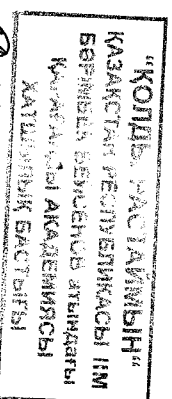 "ҚОЛДЫ РАСТАЙМЫН"
ҚАЗАҚСТАН РЕСПУБЛИКАСЫ ІІМ
БӘРІМБЕК БЕЙСЕНОВ атындағы
ҚАРАҒАНДЫ АКАДЕМИЯСЫ
БАСТЫҒЫ